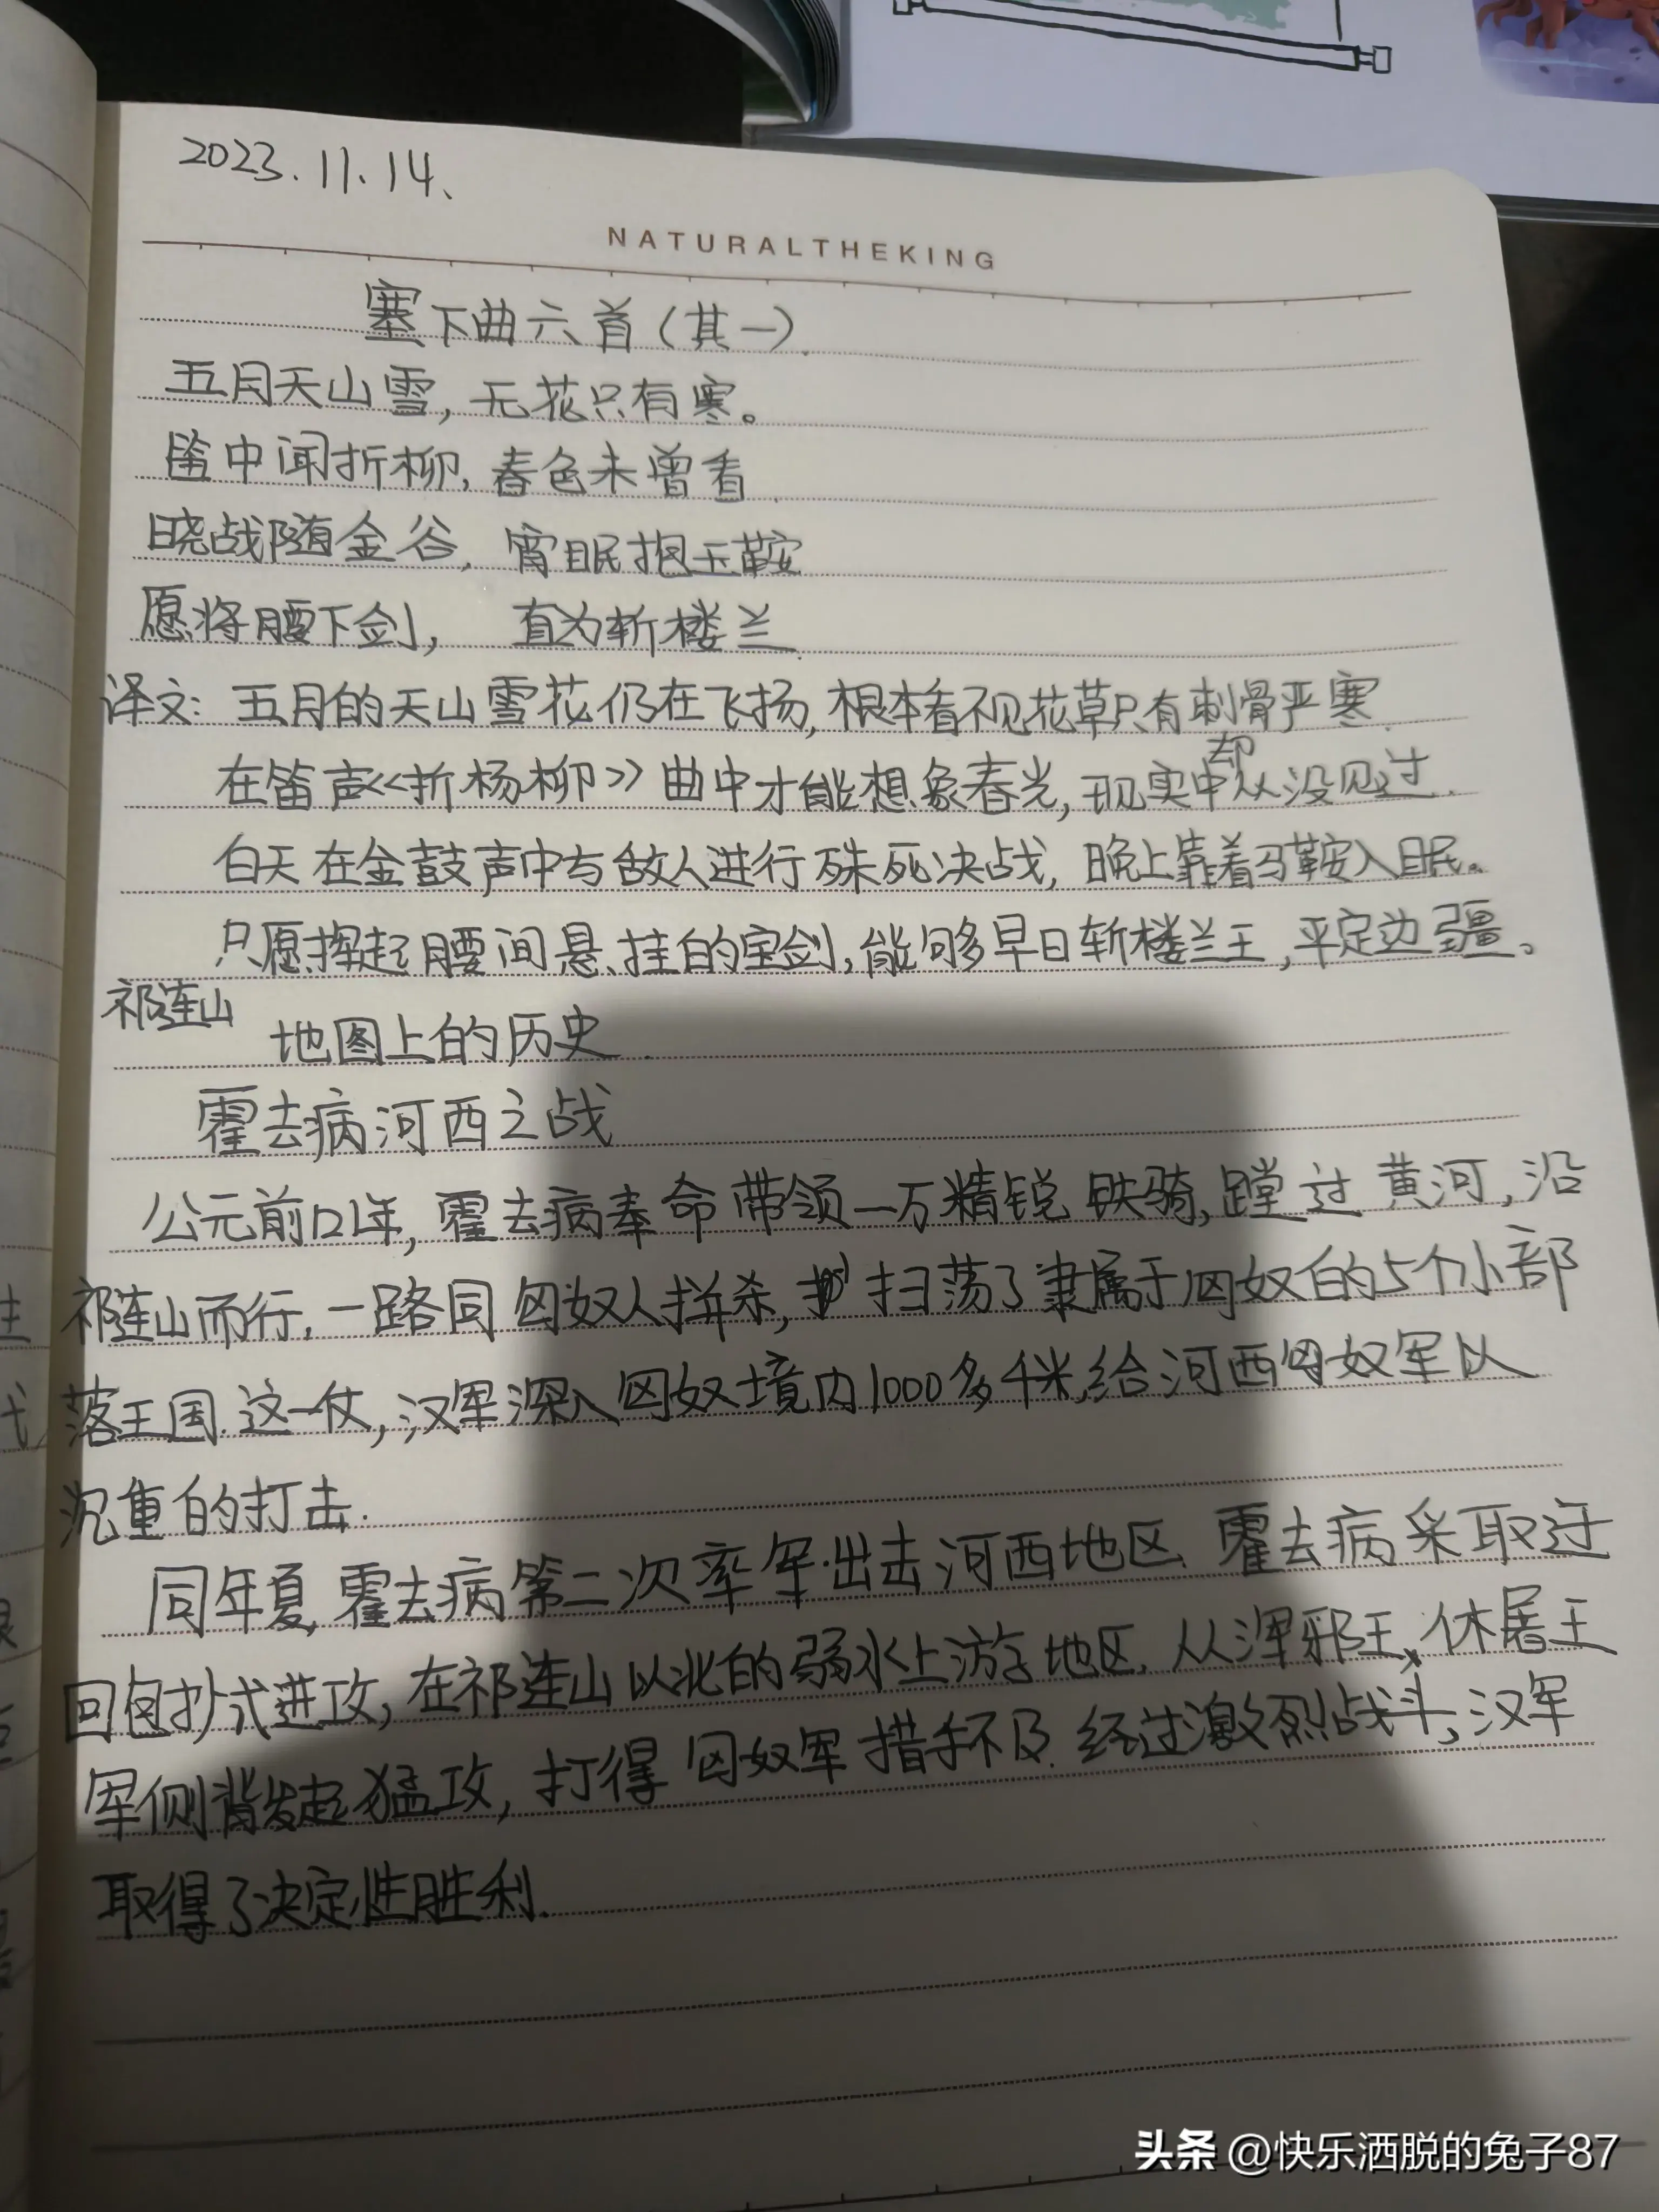 2023.11.14、
NATURALTHEKING
塞下曲六首（其一）.
五月天山雪，无花只有寒。
笛中闻折柳，春色未曾看
晓战随金谷，宵眠抱玉鞍
愿将腰下剑，直为斩楼兰
译文：五月的天山雪花仍在飞扬，根本看不见花草只有刺骨严寒.
在笛声《折杨柳》曲中才能想象春光，现实中却从没见过.
白天在金鼓声中与敌人进行殊死决战，晚上靠着马鞍入眠。
只愿挥起腰间悬挂的宝剑，能够早日斩楼兰王，平定边疆。
祁连山
地图上的历史.
霍去病河西之战
公元前121年，霍去病奉命带领一万精锐铁骑，蹚过黄河，沿
祁连山而行，一路同匈奴人拼杀，扫荡了隶属于匈奴的5个小部
落王国.这一仗，汉军深入匈奴境内1000多千米，给河西匈奴军以
沉重的打击.
同年夏，霍去病第二次率军出击河西地区.霍去病采取迂
回包抄式进攻，在祁连山以北的弱水上游地区，从浑邪王、休屠王
军侧背发起猛攻，打得匈奴军措手不及.经过激烈战斗，汉军
取得了决定性胜利.
头条 @快乐洒脱的兔子87